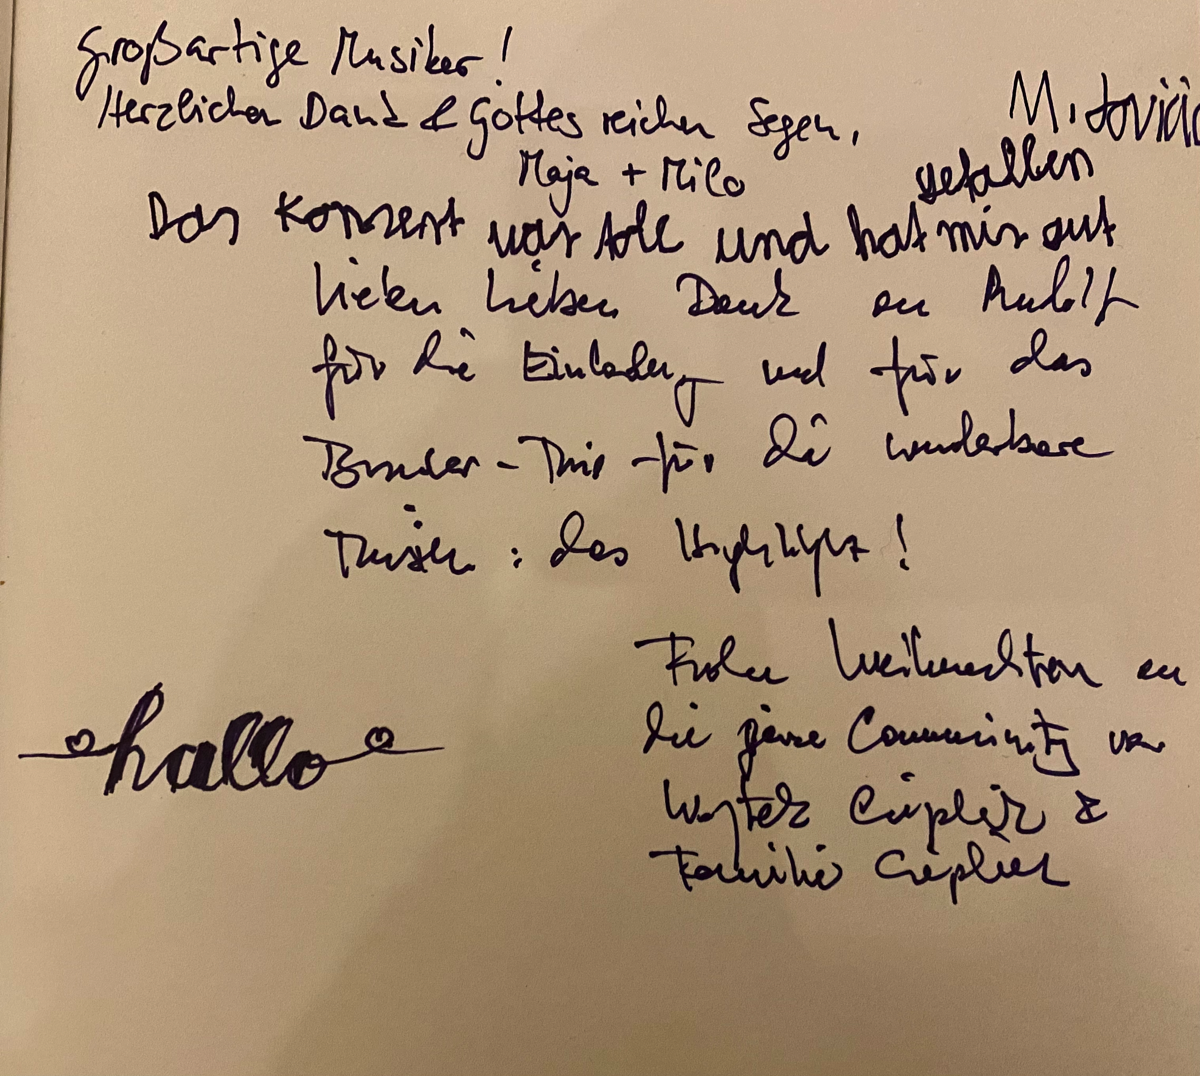 Großartige Musiker!
Herzlichen Dank & Gottes reichen Segen,
Maja + Milo
M. Jovicic
gefallen
Das Konzert war toll und hat mir gut
Lieben lieben Dank an Rudolf
für die Einladung und für das
Bruder-Trio für die wunderbare
Musik: das Highlight!
Frohe Weihnachten an
die ganze Community von
Wojtek &
Familie
hallo